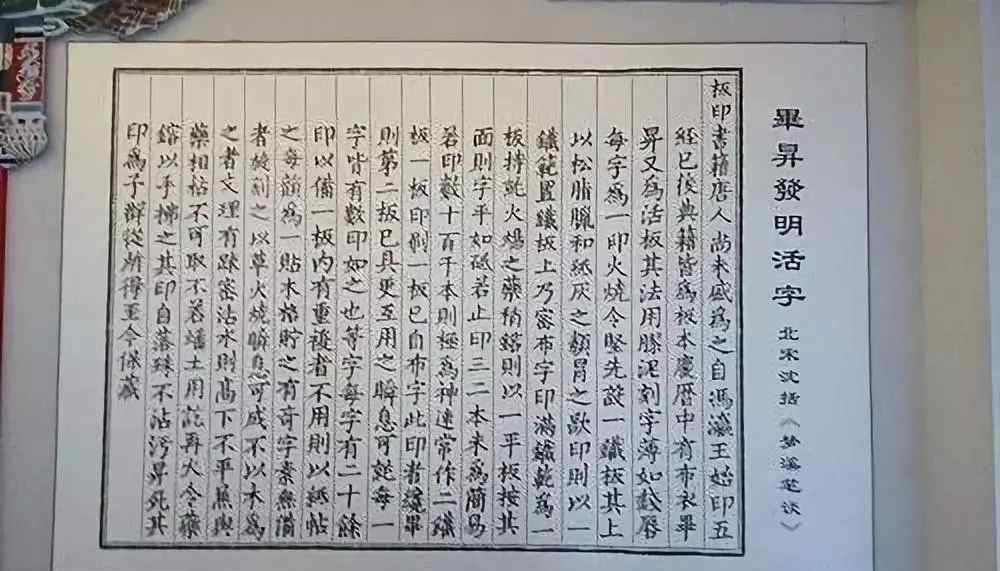 畢昇發明活字
北宋沈括《梦溪笔谈》
板印書籍唐人尚未盛為之自馮瀛王始印五
經已後典籍皆為板本慶曆中有布衣畢
昇又為活板其法用膠泥刻字薄如錢唇
每字為一印火燒令堅先設一鐵板其上
以松脂臘和紙灰之類冒之欲印則以一
鐵範置鐵板上乃密布字印滿鐵範為一
板持就火煬之藥稍鎔則以一平板按其
面則字平如砥若止印三二本未為簡易
若印數十百千本則極為神速常作二鐵
板一板印刷一板已自布字此印者纔畢
則第二板已具更互用之瞬息可就每一
字皆有數印如之也等字每字有二十餘
印以備一板內有重複者不用則以紙帖
之每韻為一貼木格貯之有奇字素無備
者旋刻之以草火燒瞬息可成不以木為
之者文理有疎密沾水則高下不平兼與
藥相粘不可取不若燔土用訖再火令藥
鎔以手拂之其印自落殊不沾汚昇死其
印為予群從所得至今保藏